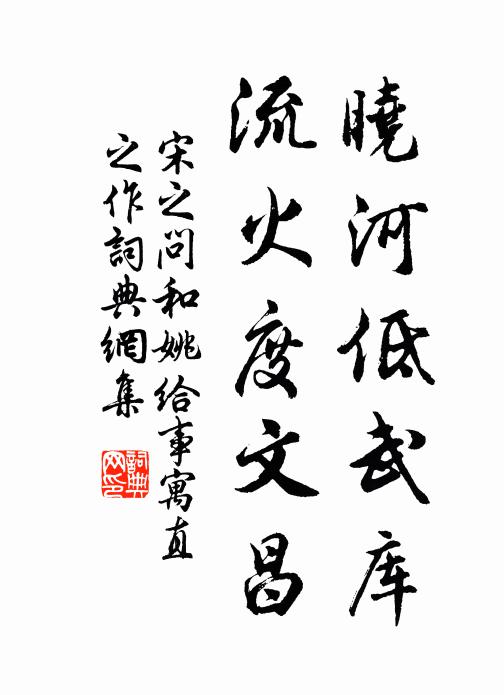 曉河低武库
流火度文昌
宋之问和姚给事寓直
之作詞典網集
詞典
网印